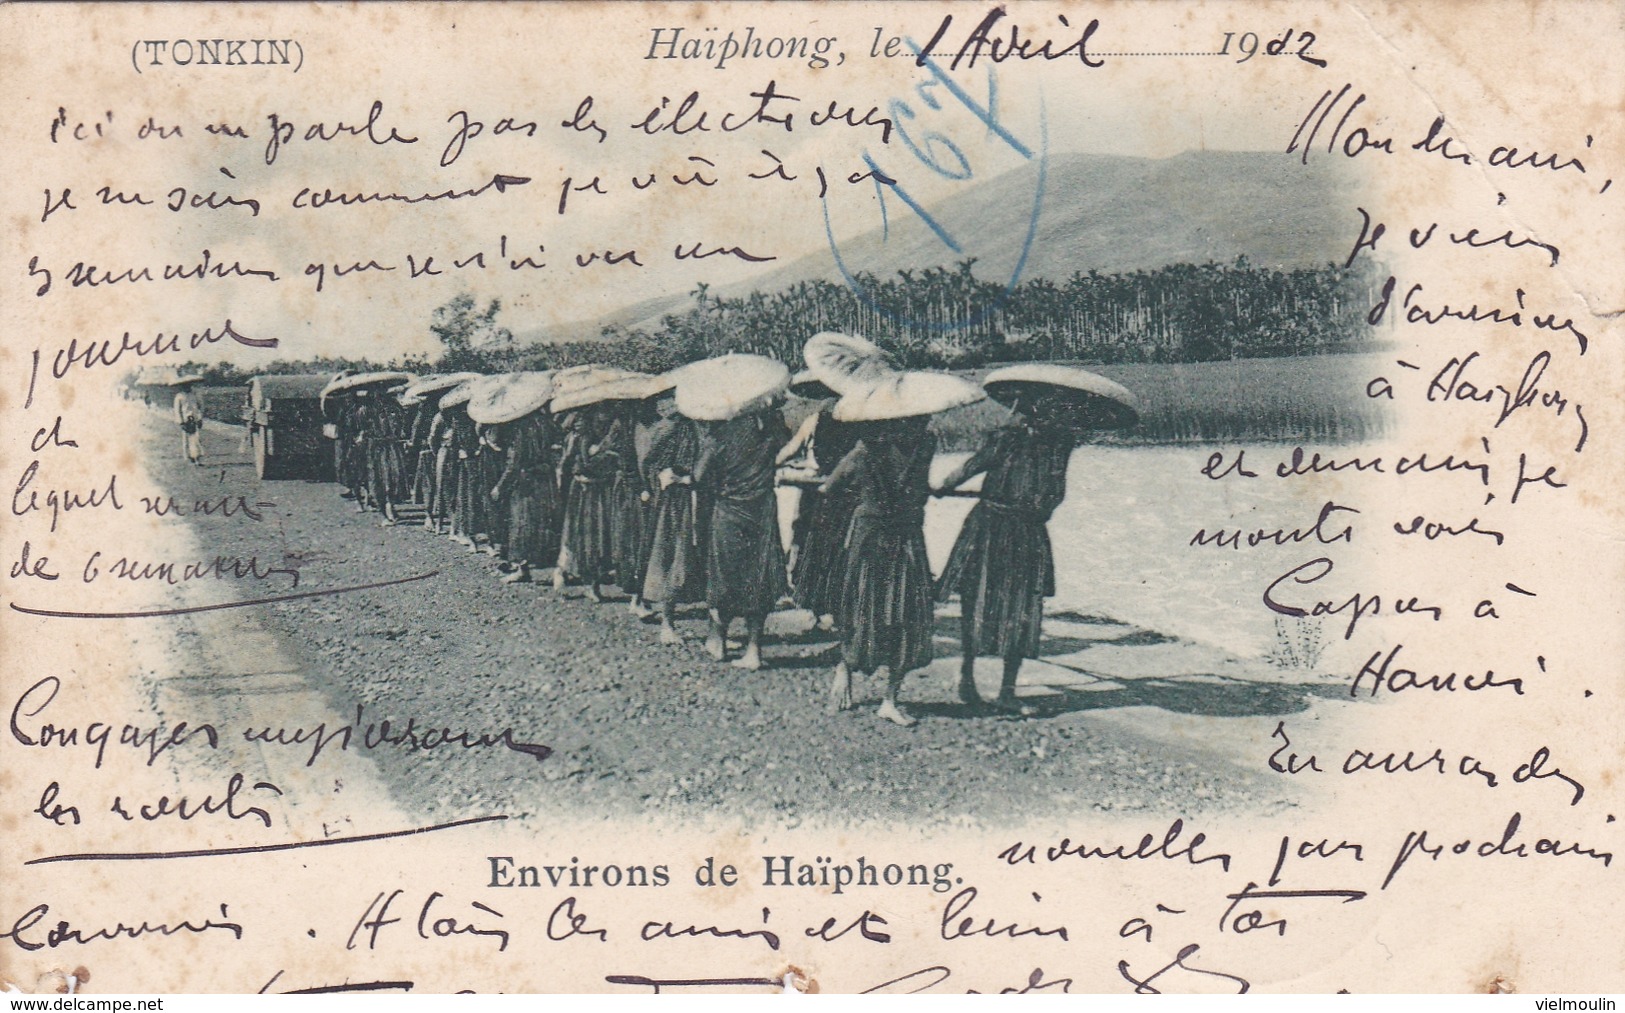 (TONKIN)
Haïphong, le 1 Avril 1902
167
Mon cher ami,
je viens
d'arriver
à Haiphong
et demain je
monte voir
à
Hanoi.
Tu auras des
nouvelles par prochain
courrier. A tous les amis et bien à toi
ici on ne parle pas des élections
je ne sais comment je vis il y a
3 semaines que je n'ai vu un
journal
et
lequel serait
de 6 semaines
Congayes empierrant
les routes
Environs de Haïphong.
vielmoulin
www.delcampe.net